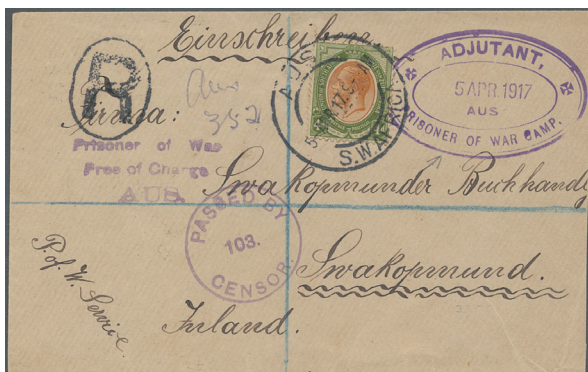 Einschreiben.
R
Aus
352
AUS
S.W.AFRICA
ADJUTANT,
5 APR. 1917
AUS
PRISONER OF WAR CAMP.
Firma:
Prisoner of War
Free of Charge
AUS.
Swakopmunder Buchhandlg
PASSED BY
103.
CENSOR.
Swakopmund.
P. of W. Service.
Inland.